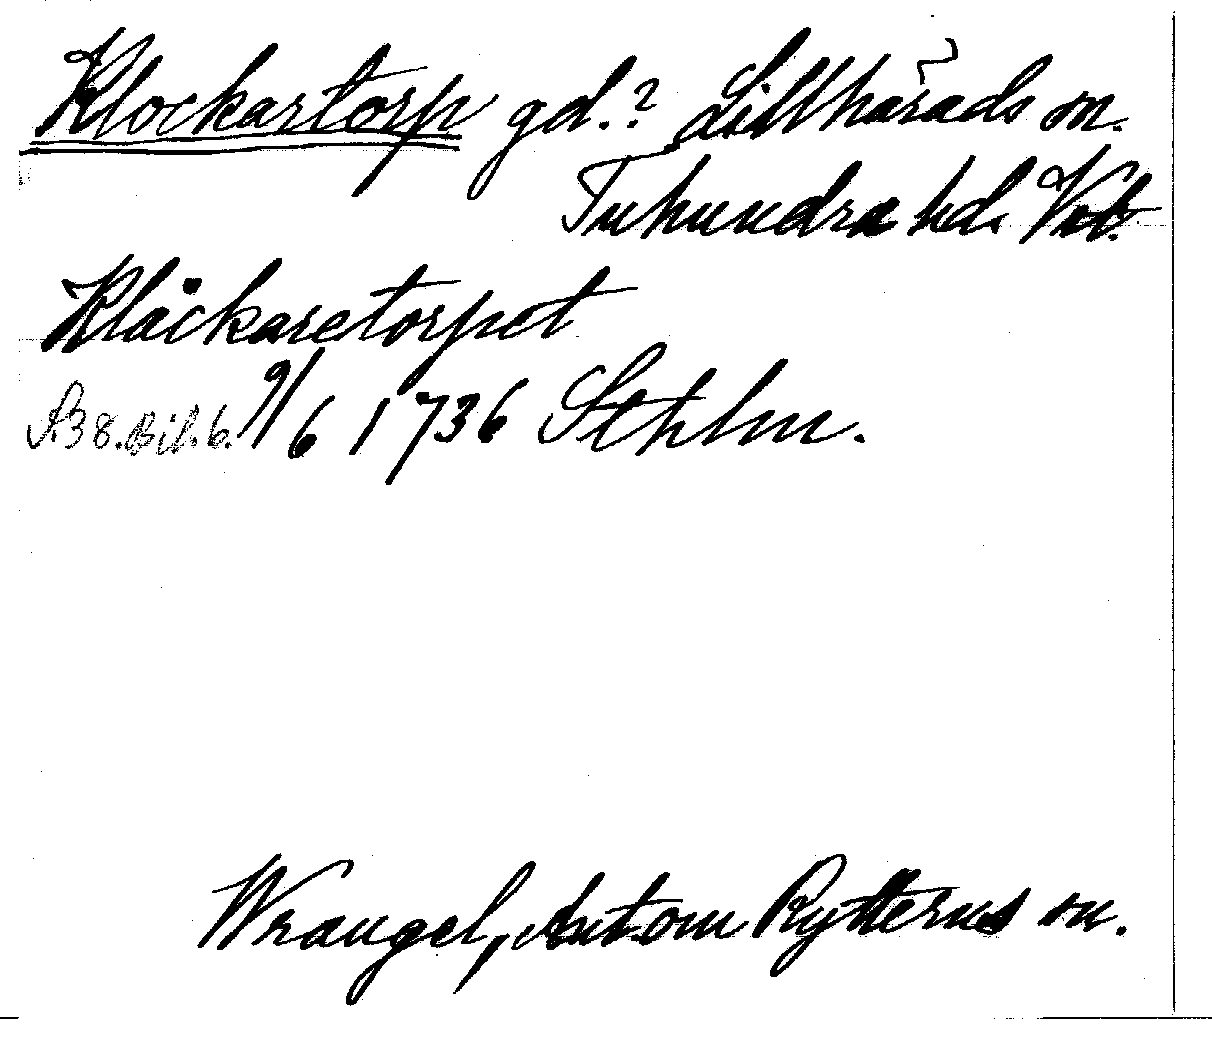 Klockartorp gd.? Lillhärads sn.
Tuhundra hd. Vstm.
Klåckaretorpet
S. 38. Bil. 6. 9/6 1736 Sthlm.
Wrangel, Ant. om Rytterns sn.